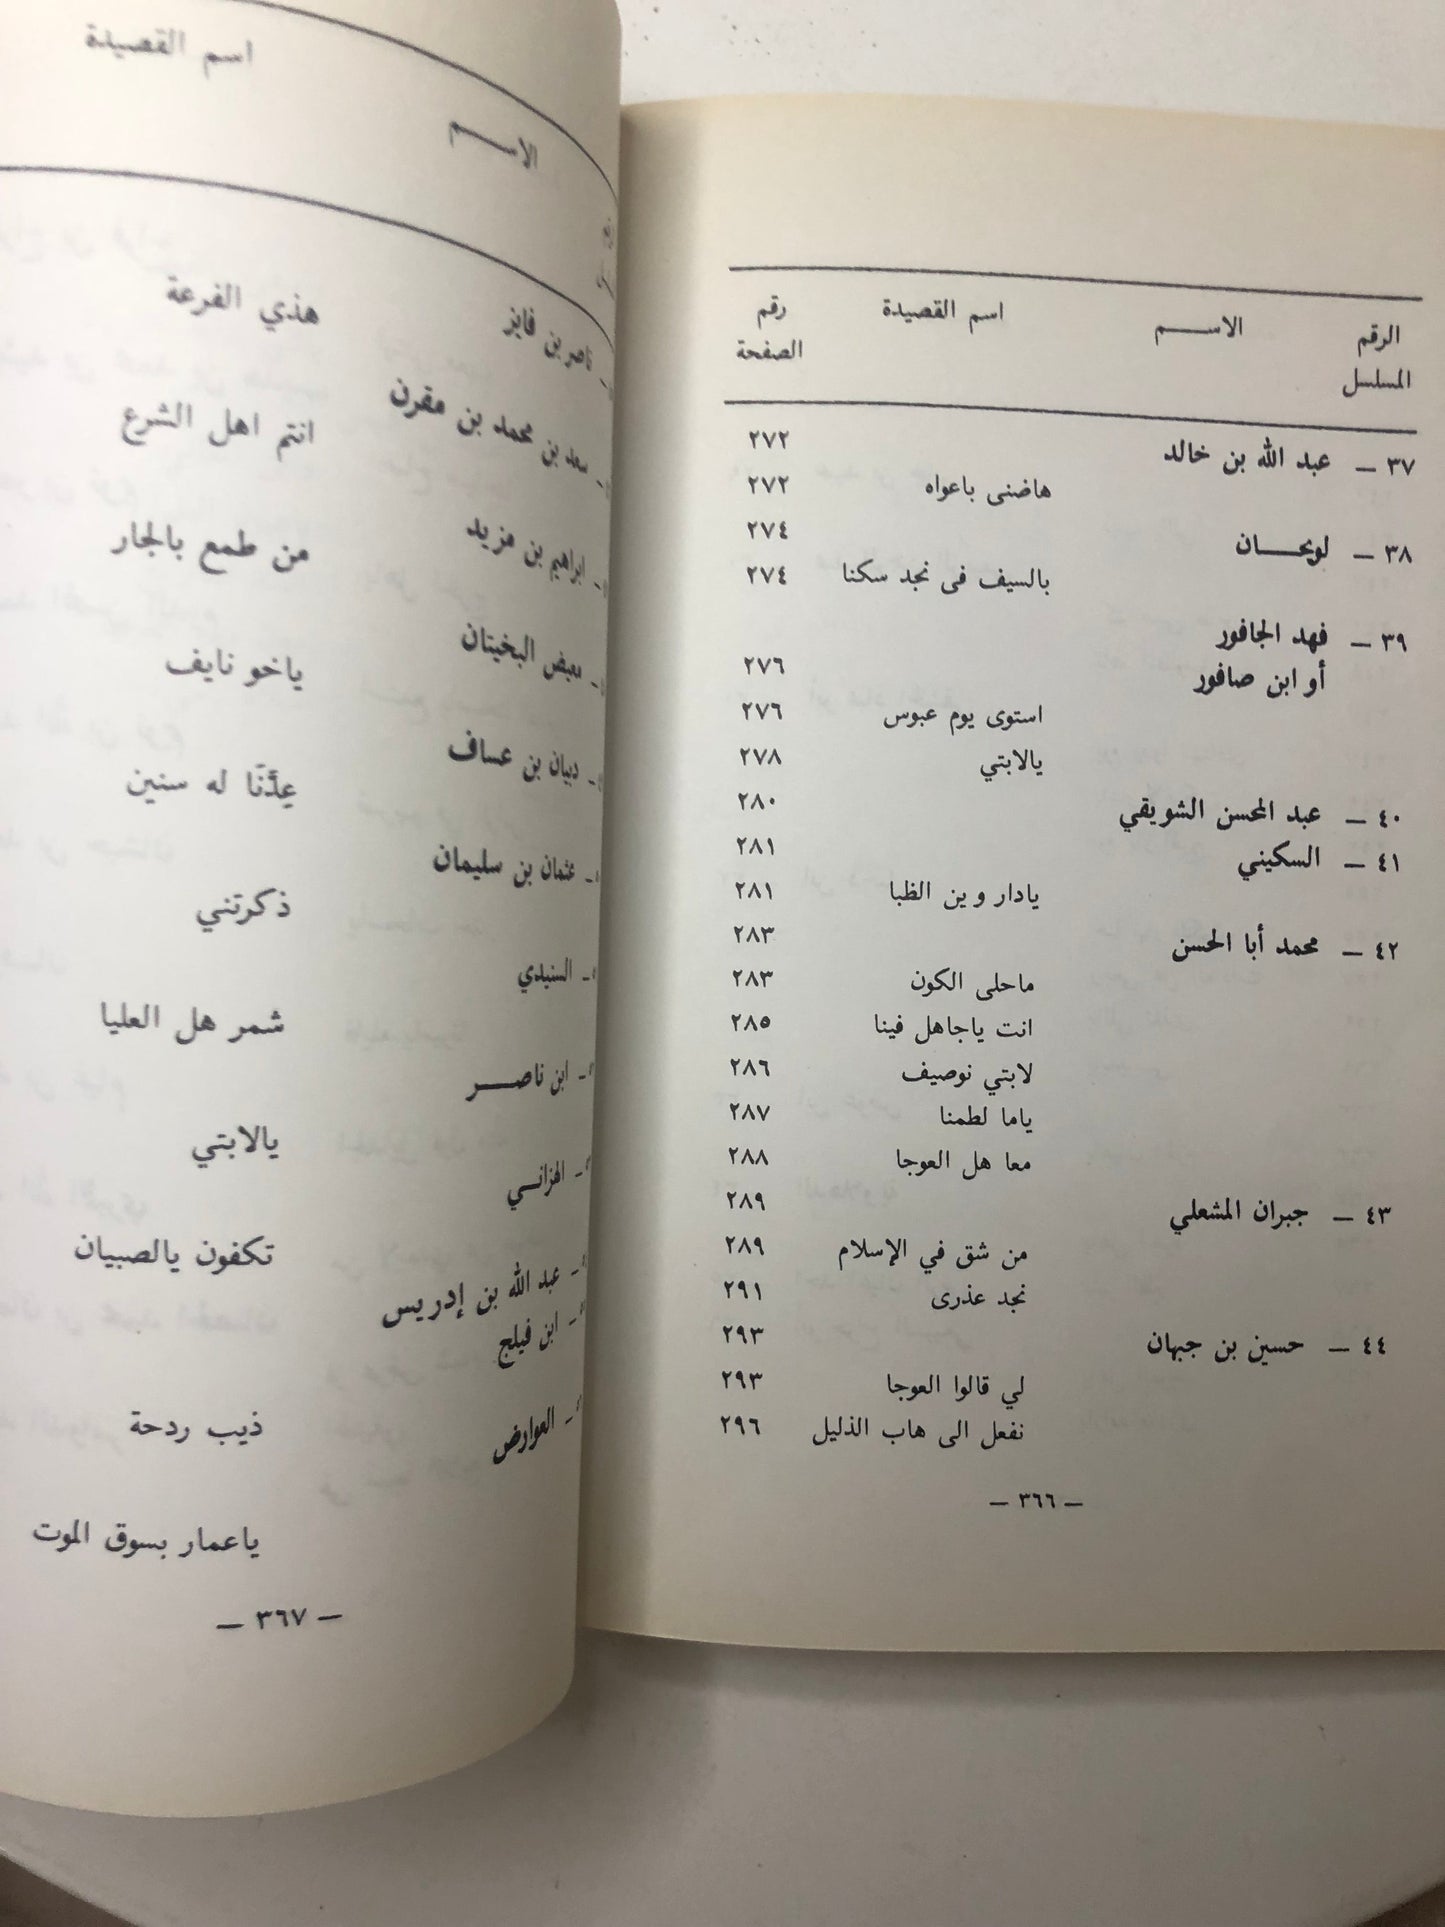 الرقم الاســـم اسم القصيدة رقم
المسلسل الصفحة
٣٧ — عبد الله بن خالد ٢٧٢
هاضنى باعواه ٢٧٢
٣٨ — لويحـــان ٢٧٤
بالسيف فى نجد سكنا ٢٧٤
٣٩ — فهد الجافور
أو ابن صافور ٢٧٦
استوى يوم عبوس ٢٧٦
يالابتي ٢٧٨
٤٠ — عبد المحسن الشويقي ٢٨٠
٤١ — السكيني ٢٨١
يادار وين الظبا ٢٨١
٤٢ — محمد أبا الحسن ٢٨٣
ماحلى الكون ٢٨٣
انت ياجاهل فينا ٢٨٥
لابتي نوصيف ٢٨٦
ياما لطمنا ٢٨٧
معا هل العوجا ٢٨٨
٤٣ — جبران المشعلي ٢٨٩
من شق في الإسلام ٢٨٩
نجد عذرى ٢٩١
٤٤ — حسين بن جبهان ٢٩٣
لي قالوا العوجا ٢٩٣
نفعل الى هاب الذليل ٢٩٦
— ٣٦٦ —
الاســـم اسم القصيدة
ناصر بن فايز
هذي الفرعة
سعد بن محمد بن مقرن
انتم اهل الشرع
ابراهيم بن مزيد
من طمع بالجار
معيض البخيتان
ياخو نايف
دبيان بن عساف
عِدَّنَا له سنين
عثمان بن سليمان
ذكرتني
السنيدي
شمر هل العليا
ابن ناصـــر
يالابتي
الهزانـي
تكفون يالصبيان
عبد الله بن إدريس
ابن فيلج
ذيب ردحة
العوارض
ياعمار بسوق الموت
— ٣٦٧ —